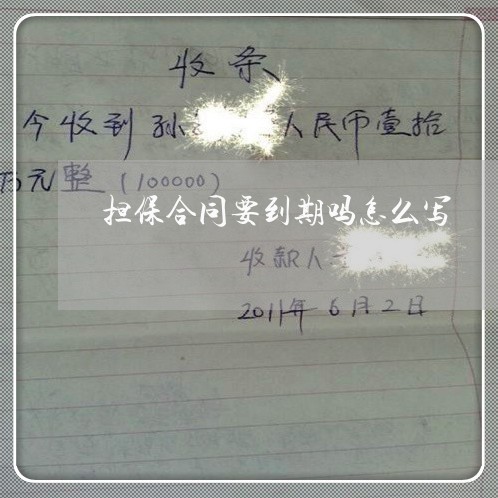 收条
今收到孙 人民币壹拾
万元整（100000）
担保合同要到期吗怎么写
收款人
2011年6月2日